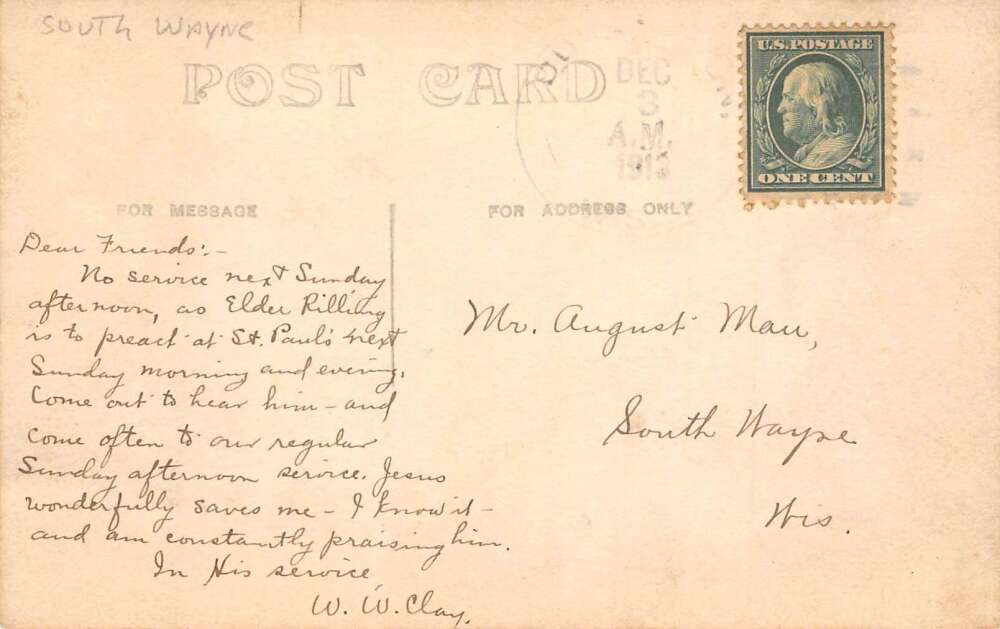 SOUTH WAYNE
POST CARD
DEC
3
A.M.
1913
U.S. POSTAGE
ONE CENT
FOR MESSAGE
FOR ADDRESS ONLY
Dear Friends:-
No service next Sunday
afternoon, as Elder Rilling
is to preach at St. Paul's next
Sunday morning and evening.
Come out to hear him - and
come often to our regular
Sunday afternoon service. Jesus
wonderfully saves me - I know it -
and am constantly praising him.
In His service
W. W. Clay.
Mr. August Mau,
South Wayne
Wis.